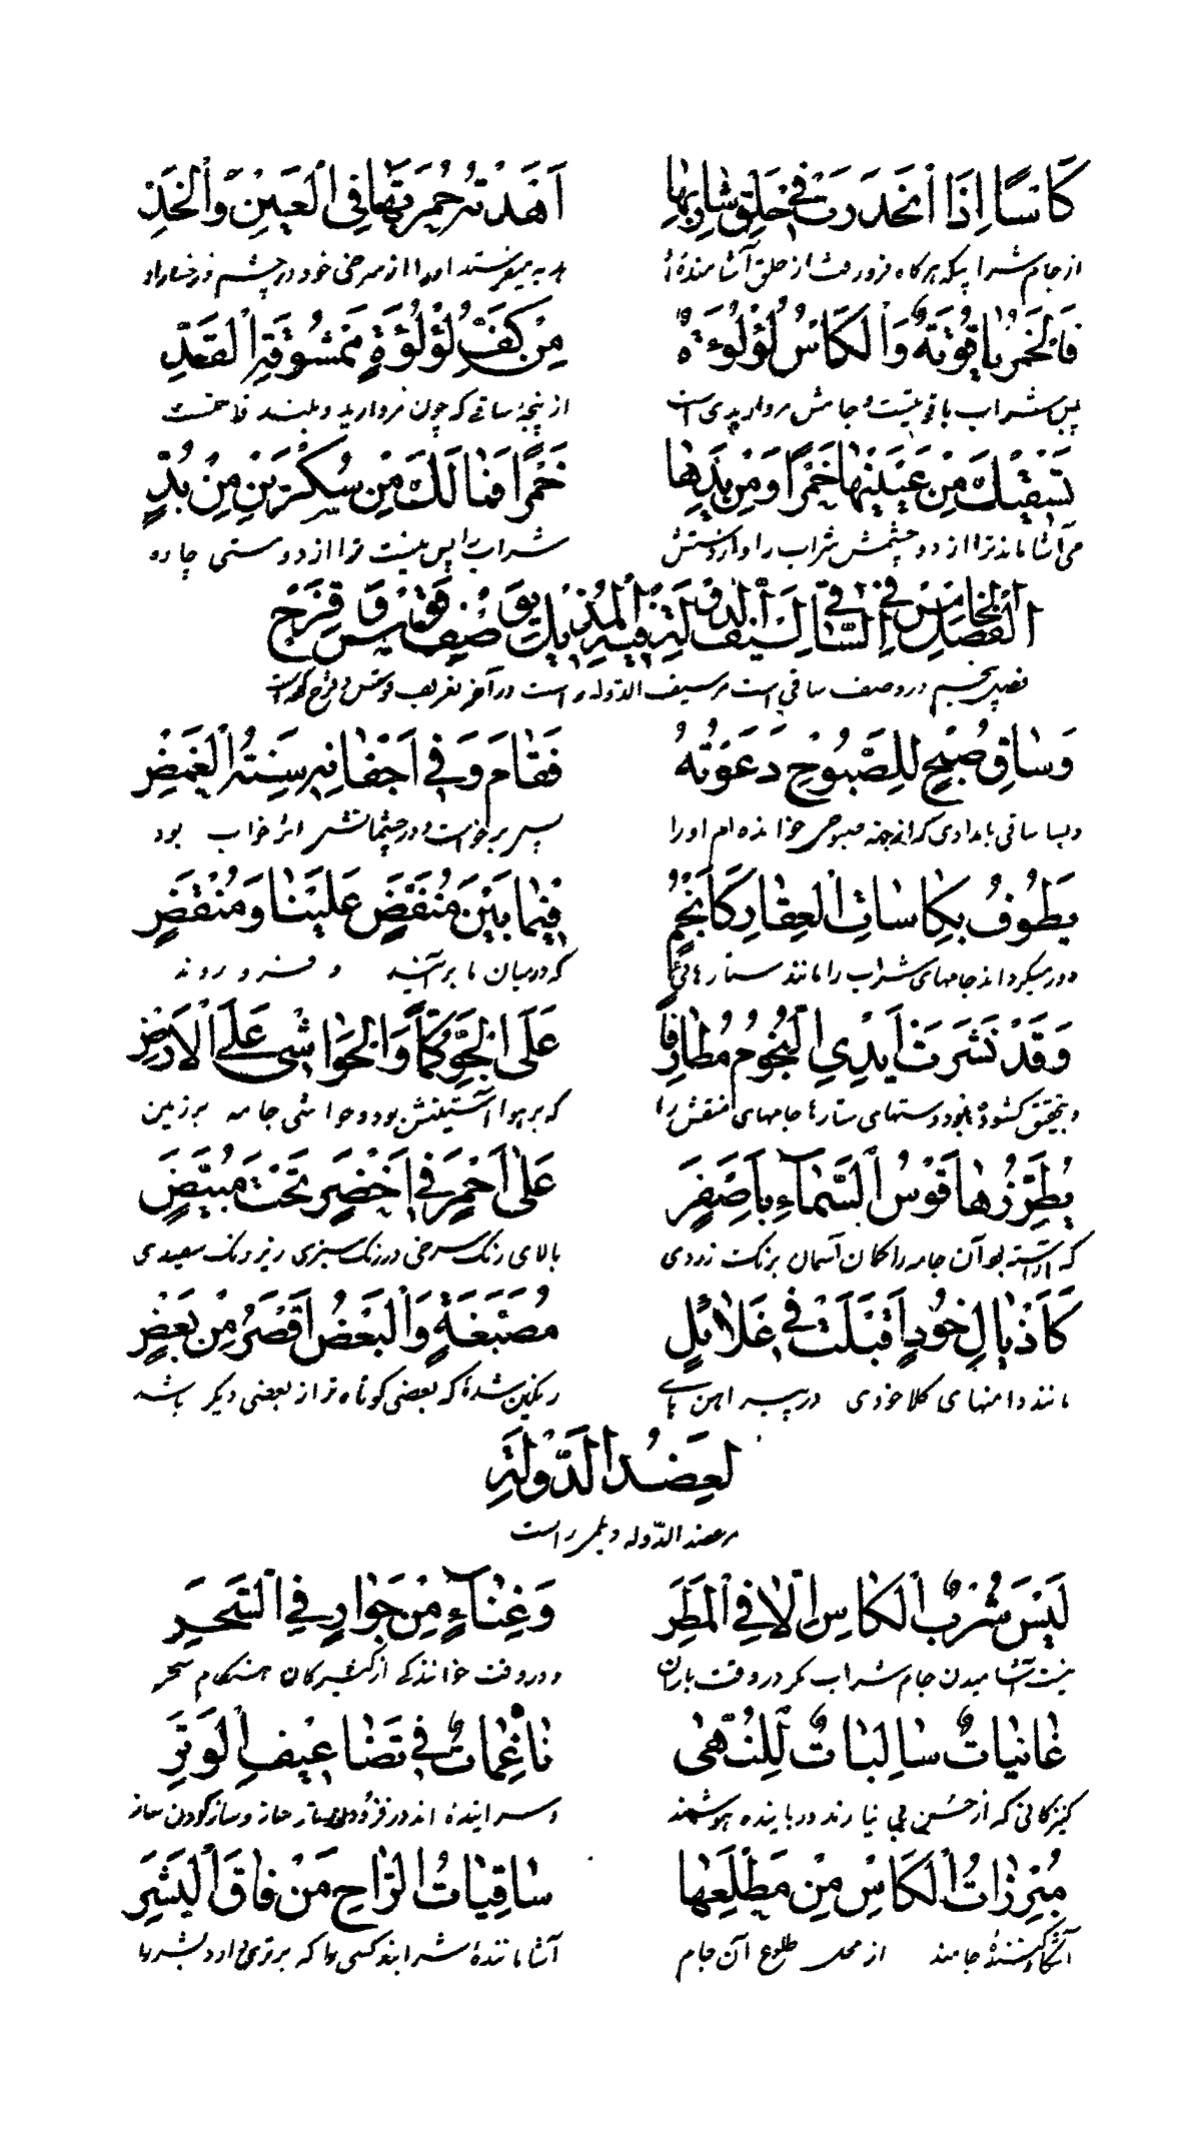 كَاسًا اِذَا انْحَدَرَتْ فِي حَلْقِ شَارِبِهَا اَهْدَتْهُ حُمْرَتَهَا فِي الْعَيْنِ وَالْخَدِّ
از جام شرابیکه هرگاه فرورفت از حلق آشامندهٔ هدیه میفرستد او را از سرخی خود در چشم و رخسار او
فَالْخَمْرُ يَاقُوتَةٌ وَالْكَاسُ لُؤْلُؤَةٌ مِنْ كَفِّ لُؤْلُؤَةٍ مَمْشُوقَةِ الْقَدِّ
پس شراب یاقوتیست و جامش مرواریدی است از پنجهٔ ساقی که چون مروارید و بلند قامتست
تَسْقِيكَ مِنْ عَيْنَيْهَا خَمْرًا وَمِنْ يَدِهَا خَمْرًا فَمَا لَكَ مِنْ سُكْرَيْنِ مِنْ بُدٍّ
می‌آشاماند ترا از دو چشمش شراب را و از دستش شراب را پس نیست ترا از دو مستی چاره
اَلْفَصْلُ الْخَامِسُ فِي السَّاقِي لِسَيْفِ الدَّوْلَةِ وَفِيهِ الْمُذَيَّلُ بِوَصْفِ قَوْسِ قُزَحَ
فصل پنجم در وصف ساقی است مر سیف الدوله راست در آخر تعریف قوس و قزح
وَسَاقٍ صُبْحٍ لِلصَّبُوحِ دَعَوْتُهُ فَقَامَ وَفِي اَجْفَانِهِ سِنَةُ الْغَمْضِ
و بسا ساقی بامدادی که از جهة صبوحی خوانده‌ام او را پس برخواست و در چشمانش اثر خواب بود
يَطُوفُ بِكَاسَاتِ الْعِقَارِ كَاَنْجُمٍ فِيمَا بَيْنَ مُنْقَضٍّ عَلَيْنَا وَمُنْقَضِّ
دور میگرداند جامهای شراب را مانند ستارهائی که در میان ما برآیند و فرو روند
وَقَدْ نَشَرَتْ اَيْدِي النُّجُومُ مُطَارِفًا عَلَى الْجَوِّ كُمًّا وَالْحَوَاشِي عَلَى الْاَرْضِ
و بتحقیق گشوده بود دستهای ستارها جامهای منقش را که بر هوا آستینش بود و حواشی جامه بر زمین
يُطَرِّزُهَا قَوْسُ السَّمَآءِ بِاَصْفَرٍ عَلَى اَحْمَرٍ فِي اَخْضَرٍ تَحْتَ مُبْيَضِّ
که آراسته بود آن جامه را کمان آسمان برنگ زردی بالای رنگ سرخی در رنگ سبزی زیر رنگ سفیدی
كَاَذْيَالِ خُودٍ اَقْبَلَتْ فِي غَلَائِلٍ مُصَبَّغَةٍ وَالْبَعْضُ اَقْصَرُ مِنْ بَعْضٍ
مانند دامنهای کلاخودی در پیراهن هائی رنگین شدهٔ که بعضی کوتاه تر از بعضی دیگر باشد
لِعَضُدِ الدَّوْلَةِ
مر عضد الدّوله دیلمی راست
لَيْسَ شُرْبُ الْكَاسِ اِلَّا فِي الْمَطَرِ وَغِنَاءٍ مِنْ جَوَارٍ فِي السَّحَرِ
نیست آشامیدن جام شراب مگر در وقت باران و در وقت خوانندگی از کنیزکان هنگام سحر
غَانِيَاتٌ سَالِبَاتٌ لِلنُّهَى نَاغِمَاتٌ فِي تَضَاعِيفِ الْوَتَرِ
کنیزکانی که از حُسن بی نیازند و رباینده هوشمند و سراینده اند در ساز
مُبْرِزَاتُ الْكَاسِ مِنْ مَطْلَعِهَا سَاقِيَاتُ الرَّاحِ مَنْ فَاقَ الْبَشَرِ
آشکارکنندهٔ جامند از محل طلوع آن جام آشامانندهٔ شرابند کسی را که برتری دارد بشر را